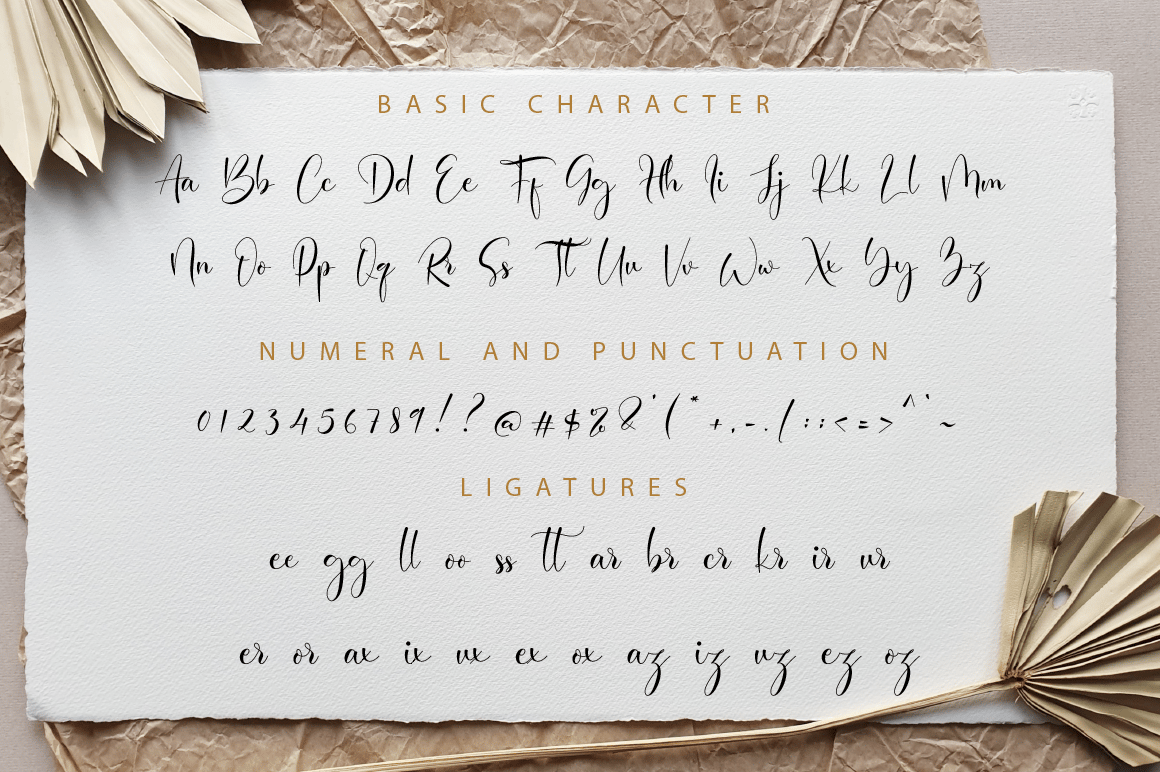 BASIC CHARACTER
Aa Bb Cc Dd Ee Ff Gg Hh Ii Jj Kk Ll Mm
Nn Oo Pp Qq Rr Ss Tt Uu Vv Ww Xx Yy Zz
NUMERAL AND PUNCTUATION
0123456789!?@#$%&'(*+,-./:;<=>^`~
LIGATURES
ee gg ll oo ss tt ar br cr kr ir ur
er or ax ix ux ex ox az iz uz ez oz